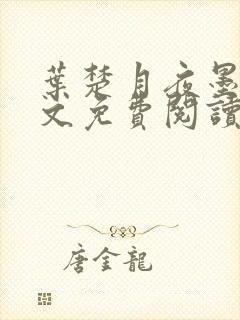 葉楚月夜墨
文免費閱讀
唐金龍